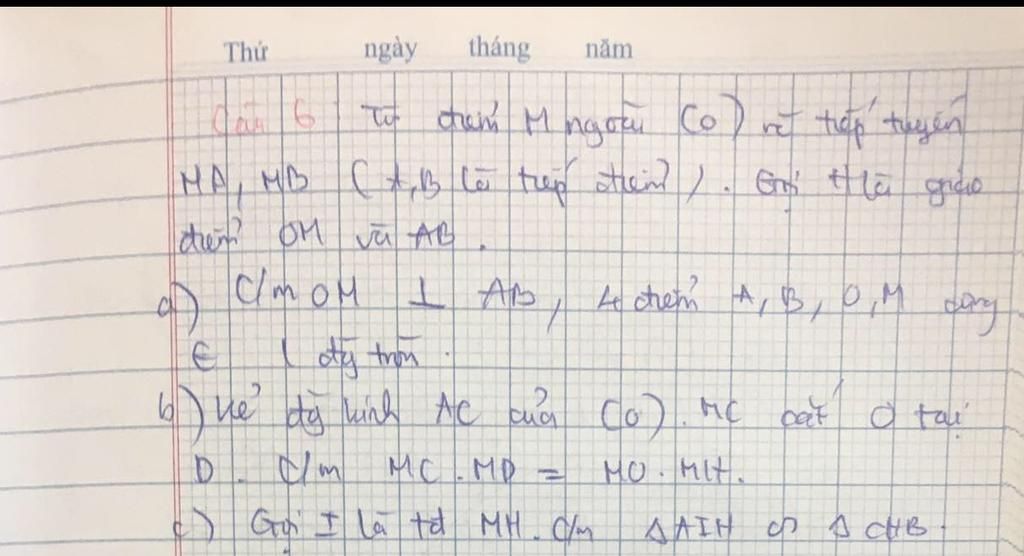 Thứ ngày tháng năm
Câu 6 Từ điểm M ngoài (O) vẽ tiếp tuyến
MA, MB (A,B là tiếp điểm). Gọi H là giao
điểm OM và AB.
a) C/m OM ⊥ AB, 4 điểm A, B, O, M cùng
∈ 1 đg tròn.
b) Kẻ đg kính AC của (O). MC cắt O tại
D. C/m MC.MD = MO.MH.
c) Gọi I là tđ MH. C/m Δ AIH ∽ Δ CHB.